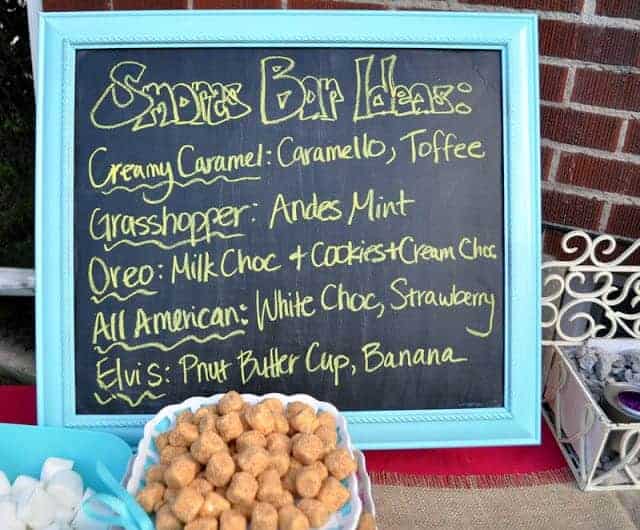 Smores Bar Ideas:
Creamy Caramel: Caramello, Toffee
Grasshopper: Andes Mint
Oreo: Milk Choc + Cookies + Cream Choc
All American: White Choc, Strawberry
Elvis: Pnut Butter Cup, Banana